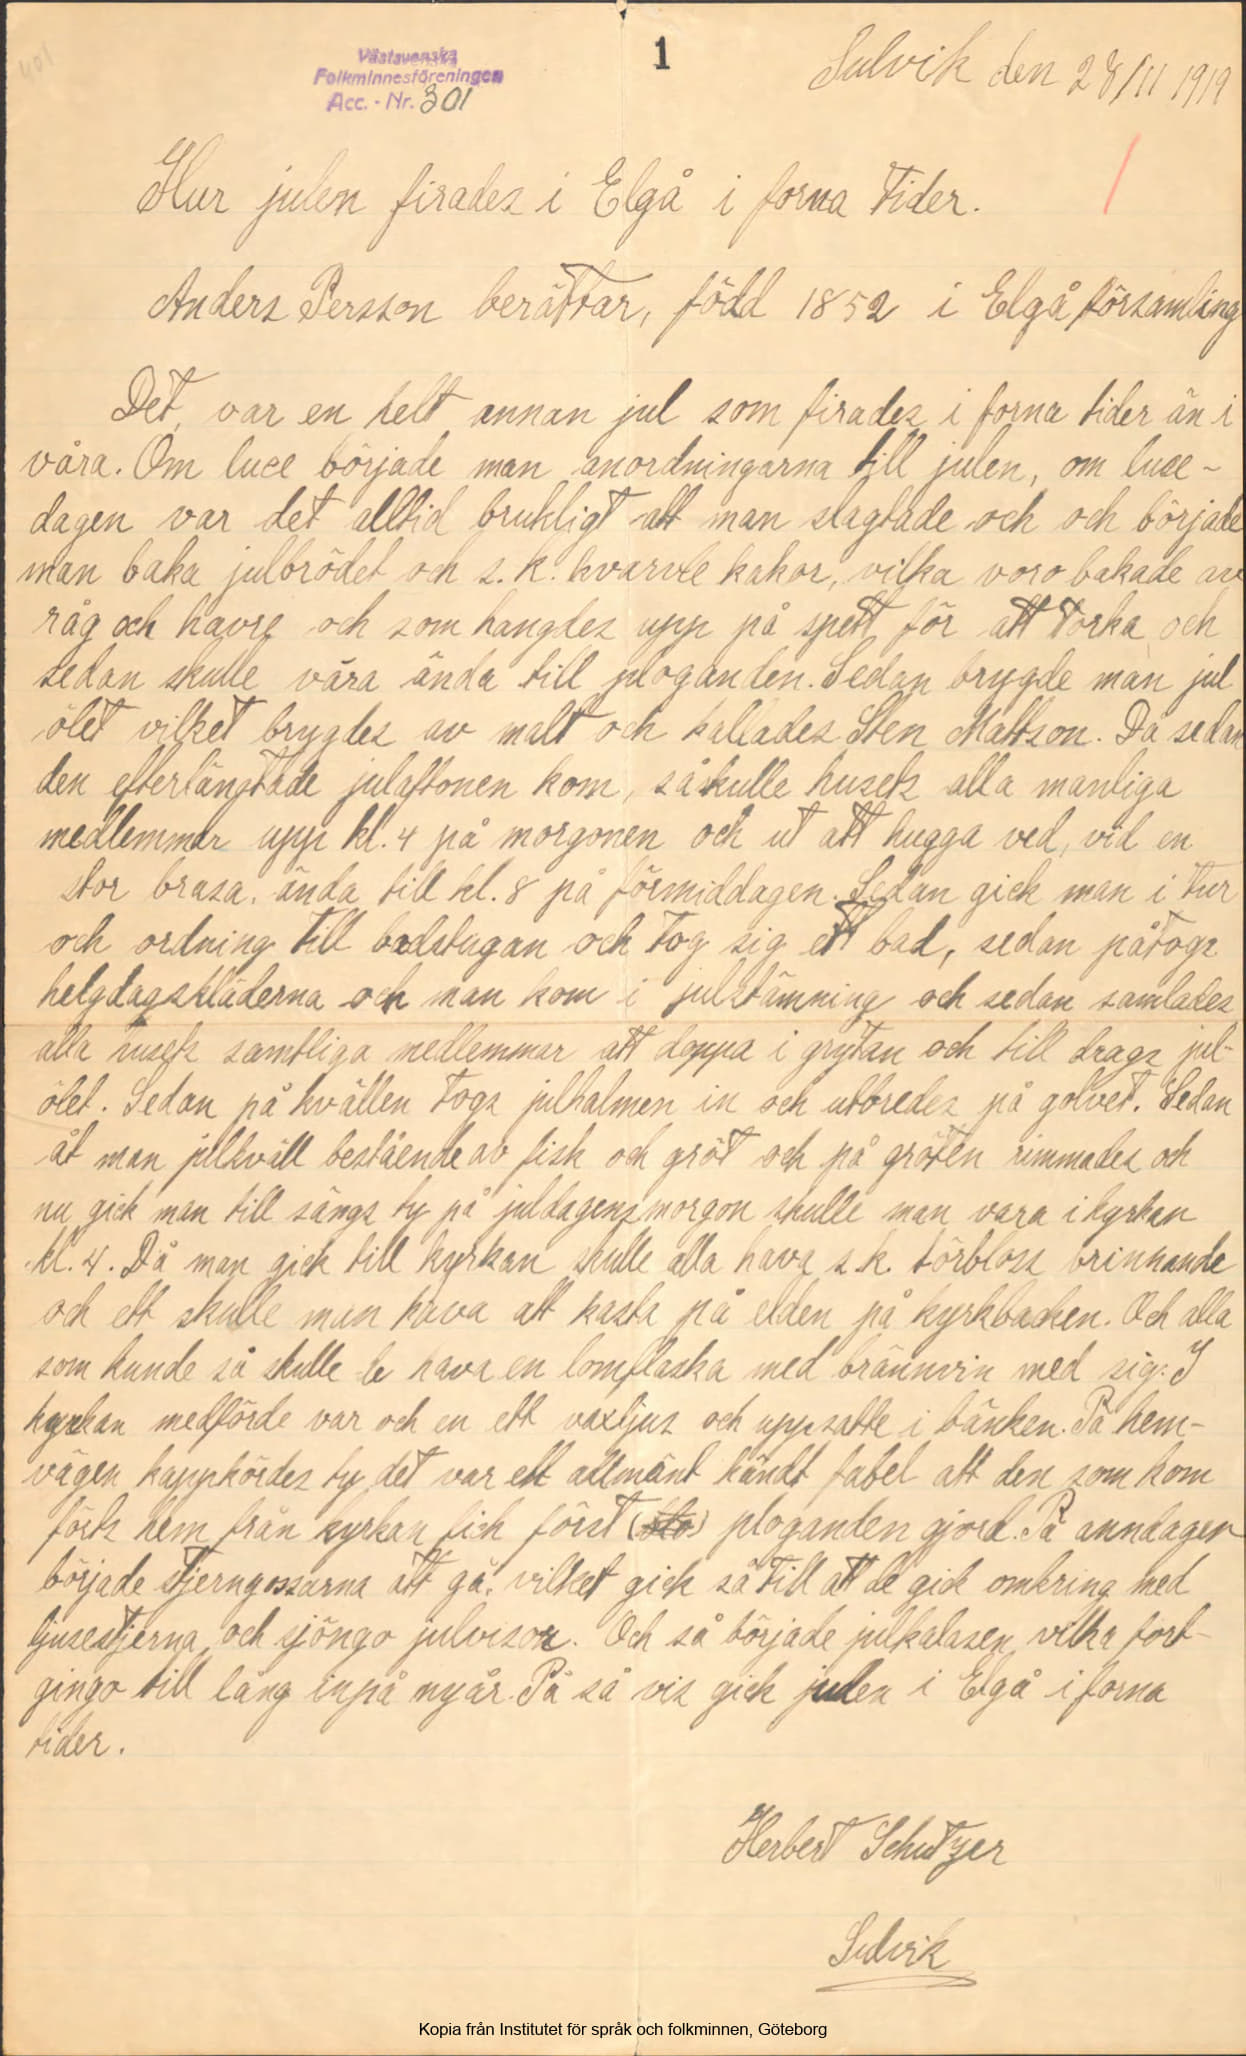 401
Västsvenska
Folkminnesföreningen
Acc. - Nr. 301
1
Sulvik den 28/11 1919
Hur julen firades i Elgå i forna tider.
Anders Persson berättar, född 1852 i Elgå församling
Det var en helt annan jul som firades i forna tider än i
våra. Om luce började man anordningarna till julen, om luse-
dagen var det alltid brukligt att man slagtade och och började
man baka julbrödet och s.k. kvarvle kakor, vilka voro bakade av
råg och havre och som hängdes upp på spett för att torka och
sedan skulle våra ända till ploganden. Sedan brygde man jul
ölet vilket brygdes av malt och kallades Sten Mattson. Då sedan
den efterlängtade julaftonen kom, så skulle husets alla manliga
medlemmar upp kl. 4 på morgonen och ut att hugga ved, vid en
stor brasa, ända till kl. 8 på förmiddagen. Sedan gick man i tur
och ordning till badstugan och tog sig ett bad, sedan påtogs
helgdagskläderna och man kom i julstämning och sedan samlades
alla husets samtliga medlemmar att doppa i grytan och till drags jul-
ölet. Sedan på kvällen togs julhalmen in och utbredes på golvet. Sedan
åt man julkväll bestående av fisk och gröt och på gröten rimmades och
nu gick man till sängs ty på juldagens morgon skulle man vara i kyrkan
kl. 4. Då man gick till kyrkan skulle alla hava s.k. törbloss brinnande
och ett skulle man hava att kasta på elden på kyrkbacken. Och alla
som kunde så skulle de hava en lomflaska med brännvin med sig. I
kyrkan medförde var och en ett vaxljus och uppsatte i bänken. På hem-
vägen kappkördes ty det var ett allmänt kändt fabel att den som kom
först hem från kyrkan fick först ploganden gjord. På anndagen
började stjerngossarna att gå, vilket gick så till att de gick omkring med
ljusestjerna och sjöngo julvisor. Och så började julkalasen vilka fort-
gingo till lång inpå nyår. På så vis gick julen i Elgå i forna
tider.
Herbert Schützer
Sulvik
Kopia från Institutet för språk och folkminnen, Göteborg